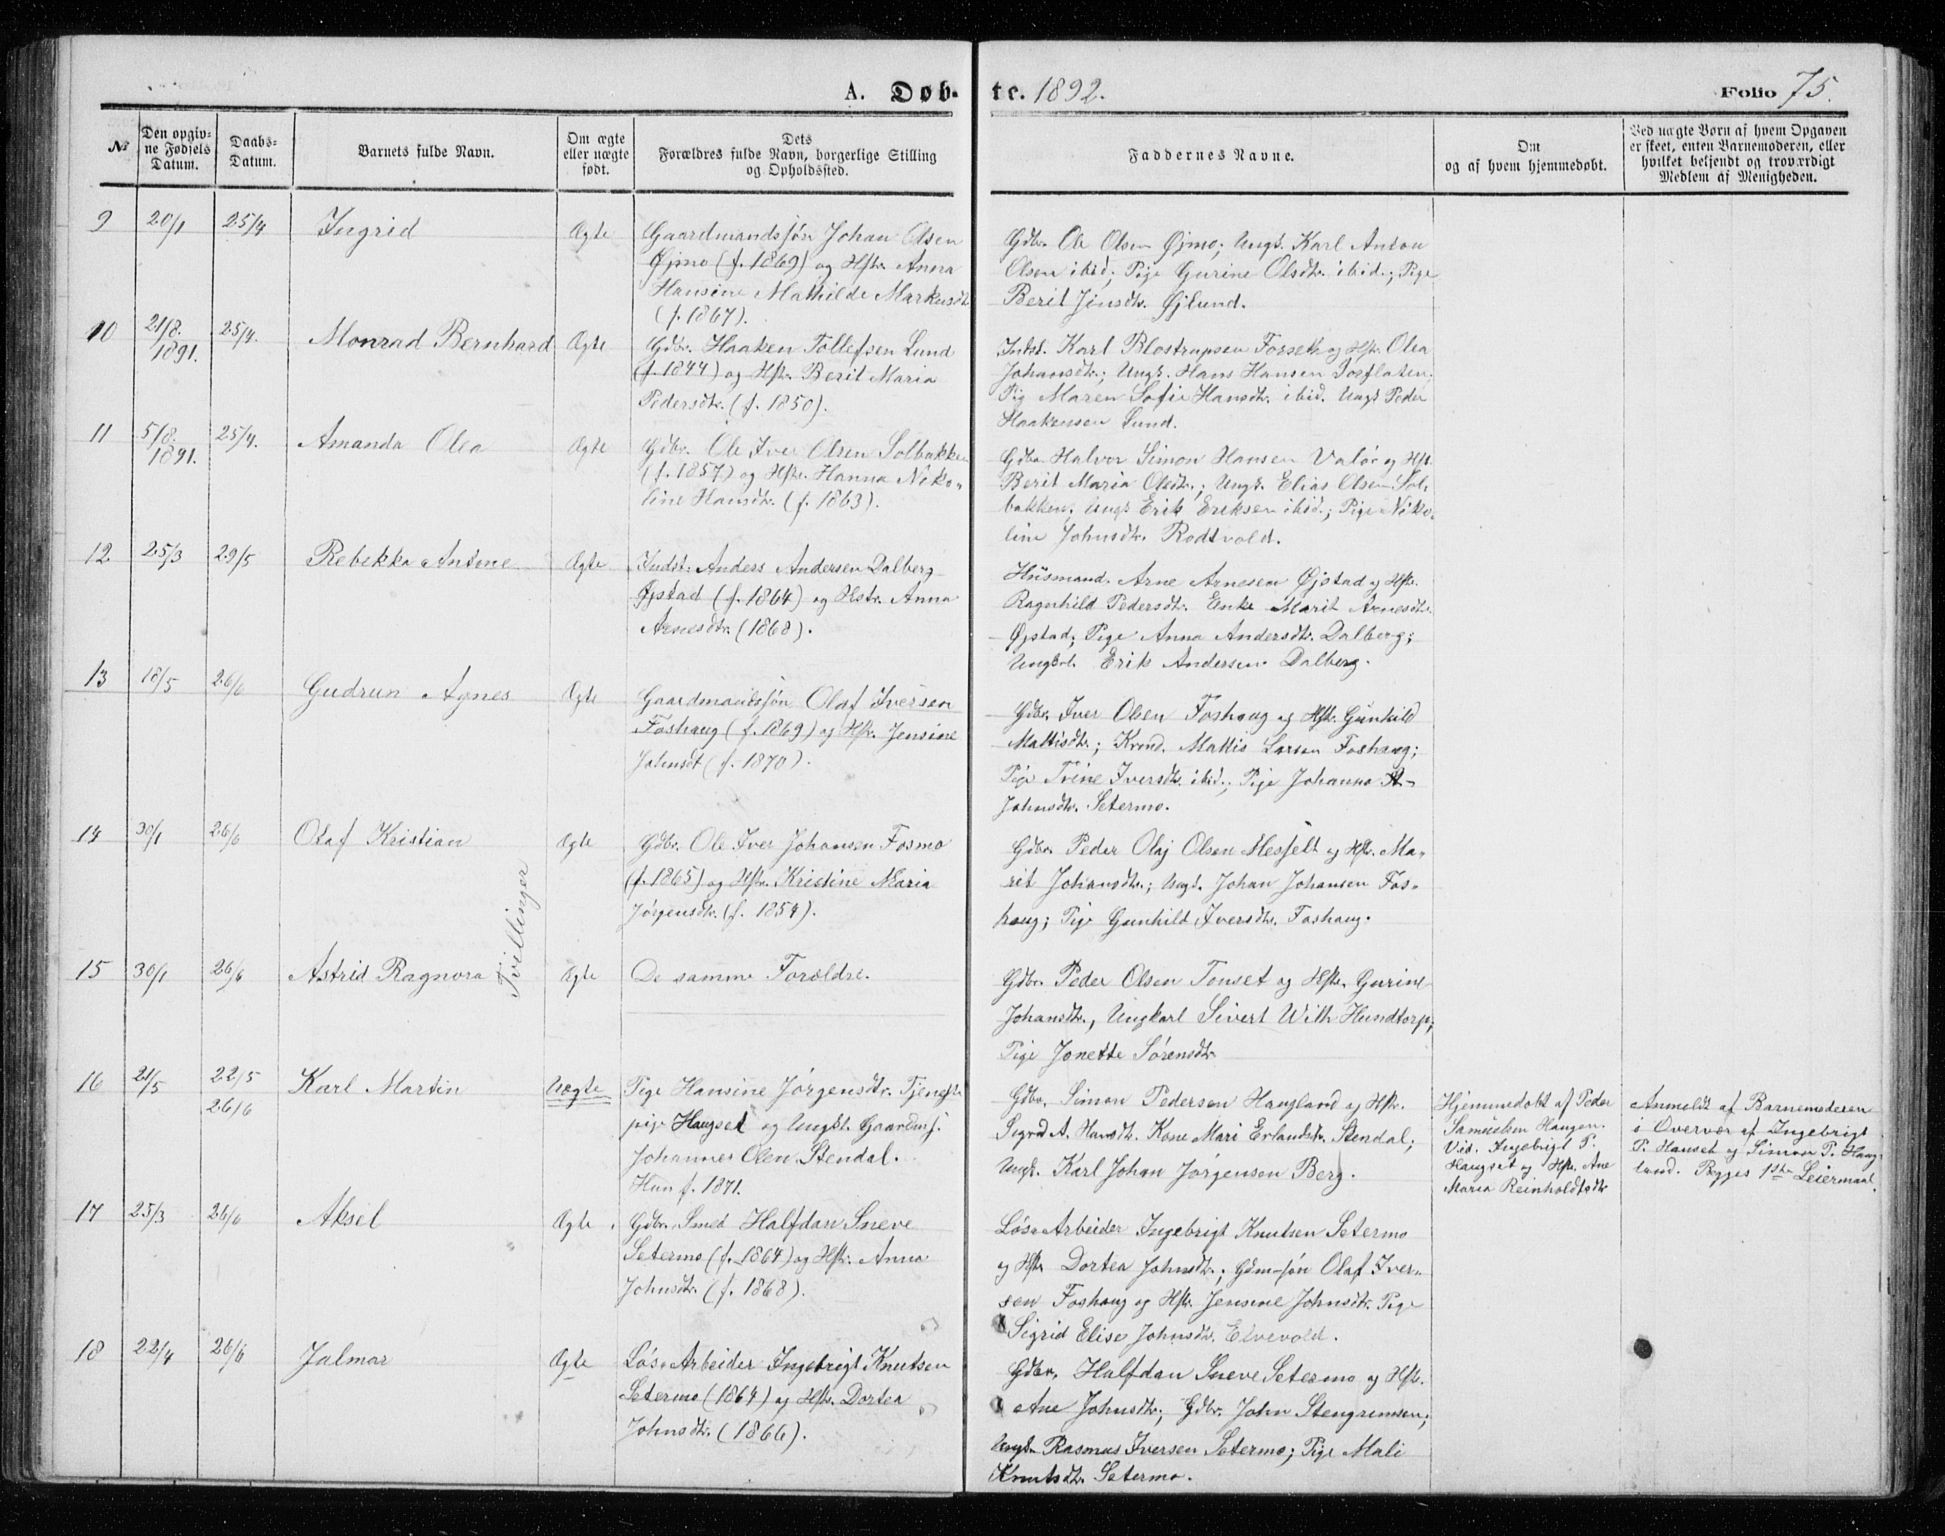 A. Døbte. 1892. Folio 75.
№
Den opgivne Fødsels Datum.
Daabs-Datum.
Barnets fulde Navn.
Om ægte eller uægte født.
Dets Forældres fulde Navn, borgerlige Stilling og Opholdssted.
Faddernes Navne.
Om og af hvem hjemmedøbt.
Ved uægte Børn af hvem Opgaven er skeet, enten Barnemoderen, eller hvilket bekjendt og troværdigt Medlem af Menigheden.
9 20/1 25/4 Ingrid Ægte
Gaardmandssøn Johan Olsen
Øjmo (f. 1869) og Hstr. Anna
Hansine Mathilde Markusdt.
(f. 1867).
Gdbr. Ole Olsen Øjmo; Ungk. Karl Anton
Olsen ibid; Pige Gurine Olsdtr. ibid.; Pige
Berit Jonsdtr. Øjlund.
10 21/8. 1891. 25/4. Monrad Bernhard Ægte
Gdbr. Haaken Tollefsen Lund
(f. 1844) og Hstr. Berit Maria
Pedersdtr. (f. 1850).
Indst. Karl Blostrupsen Forseth og Hstr. Olea
Johansdtr.; Ungk. Hans Hansen Josflaten;
Pig Maren Sofie Hansdtr. ibid. Ungk Peder
Haakensen Lund.
11 5/8. 1891. 25/4. Amanda Olea Ægte
Gdbr. Ole Iver Olsen Solbakken
(f. 1857) og Hstr. Hanna Niko-
line Hansdtr. (f. 1863).
Gdbr Halvor Simon Hansen Valø og Hst.
Berit Maria Olsdtr.; Ungk. Elias Olsen Sol-
bakken; Ungk Erik Eriksen ibid.; Pige Niko-
line Johnsdtr. Rodtvold.
12 25/3 29/5 Rebekka Antone Ægte
Indst. Anders Andersen Dalberg
Øjstad (f. 1864) og Hstr. Anna
Arnesdtr. (1868).
Husmand. Arne Arnesen Øjstad og Hstr.
Ragnhild Pedersdtr. Enke Marit Arnesdtr.
Øjstad; Pige Anna Andersdtr. Dalberg;
Ungkrl. Erik Andersen Dalberg.
13 18/5 26/6 Gudrun Agnes Ægte
Gaardmandssøn Olaf Iversen
Foshaug (f. 1869) og Hstr. Jensine
Johnsdt (f. 1870).
Gdbr. Iver Olsen Foshaug og Hstr. Gunhild
Mattisdtr.; Kvmd. Mattis Larsen Foshaug;
Pige Trine Iversdtr. ibid.; Pige Johanna A.
Johnsdtr. Setermo.
14 30/1 26/6 Olaf Kristian Ægte
Tvillinger
Gdbr. Ole Iver Johansen Fosmo
(f. 1865) og Hstr. Kristine Maria
Jørgensdtr. (f. 1854).
Gdbr Peder Olaj Olsen Mesjelt og Hstr. Ma-
rit Johansdtr.; Ungk. Johan Johansen Fos-
haug; Pige Gunhild Iversdtr. Foshaug.
15 30/1 26/6 Astrid Ragnora Ægte
De samme Forældre.
Gdbr. Peder Olsen Tonset og Hstr. Gurine
Johansdtr., Ungkarl Sivert With Hundtorp;
Pige Jonette Sørensdtr.
16 21/5 22/5 26/6 Karl Martin Uægte
Pige Hansine Jørgensdtr. Tjeneste-
pige Haugset og Ungkl. Gaardbrs.
Johannes Olen Stendal.
Hun f. 1871.
Gdbr. Simon Pedersen Haugland og Hstr.
Sigrd A. Hansdtr. Kone Mari Erlandsdtr. Stendal;
Ungk. Karl Johan Jørgensen Berg.
Hjemmedøbt af Peder
Samuelsen Haugen.
Vid. Ingebrigt P.
Haugset og Hstr. Ane
Maria Reinholdtsdtr
Anmeldt af Barnemoderen
i Overvær af Ingebrigt
P. Hauset og Simon P. Haug-
land. Begges 1ste Leiermaal.
17 25/3 26/6 Aksel Ægte
Gdbr. Smed Halfdan Sneve
Setermo (f. 1864) og Hstr. Anna
Johnsdtr. (f. 1868).
Løs-Arbeider Ingebrigt Knutsen Setermo
og Hstr Dortea Johnsdtr.; Gdm-søn Olaf Iver-
sen Foshaug og Hstr. Jensine Johnsdtr. Pige
Sigrid Elise Johnsdtr. Elvevold.
18 22/4 26/6 Jalmar Ægte
Løs-Arbeider Ingebrigt Knutsen
Setermo (1864) og Hstr. Dortea
Johnsdtr. (1866).
Gdbr. Halfdan Sneve Setermo og Hstr.
Ane Johnsdtr; Gdbr. John Stengrimsen;
Ungk. Rasmus Iversen Setermo; Pige Mali
Knutsdtr. Setermo.